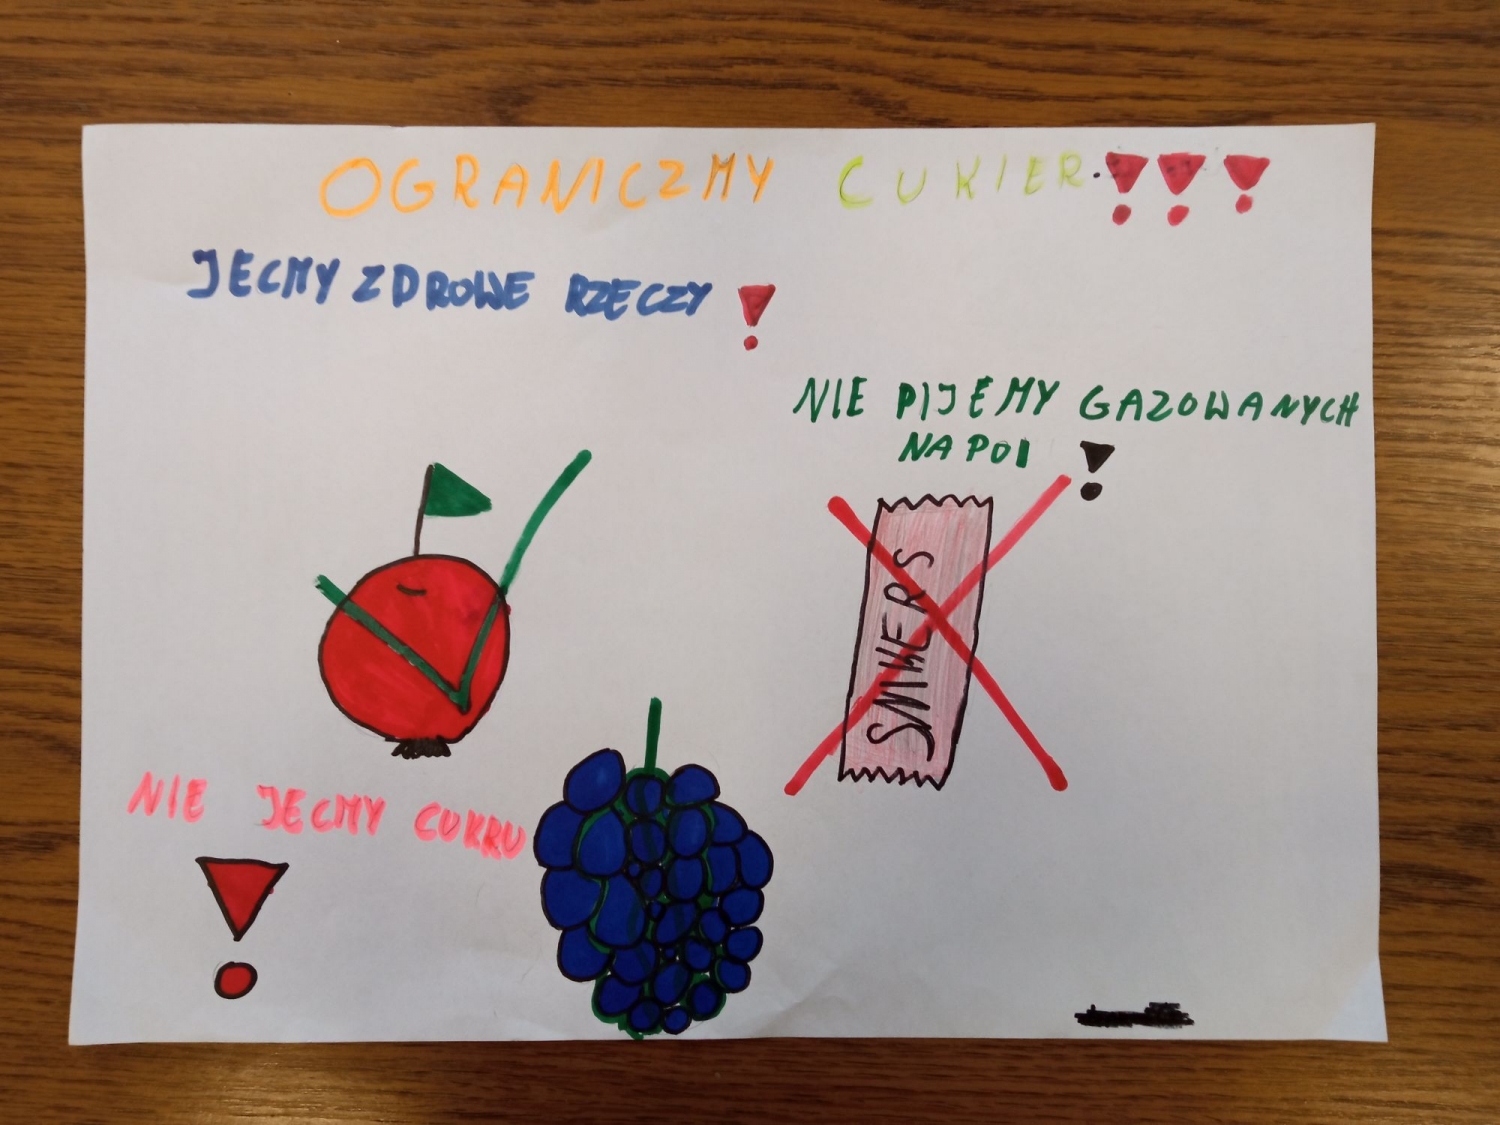 OGRANICZMY CUKIER!!!
JECMY ZDROWE RZECZY!
NIE PIJEMY GAZOWANYCH
NAPOI!
SNIKERS
NIE JECMY CUKRU
!